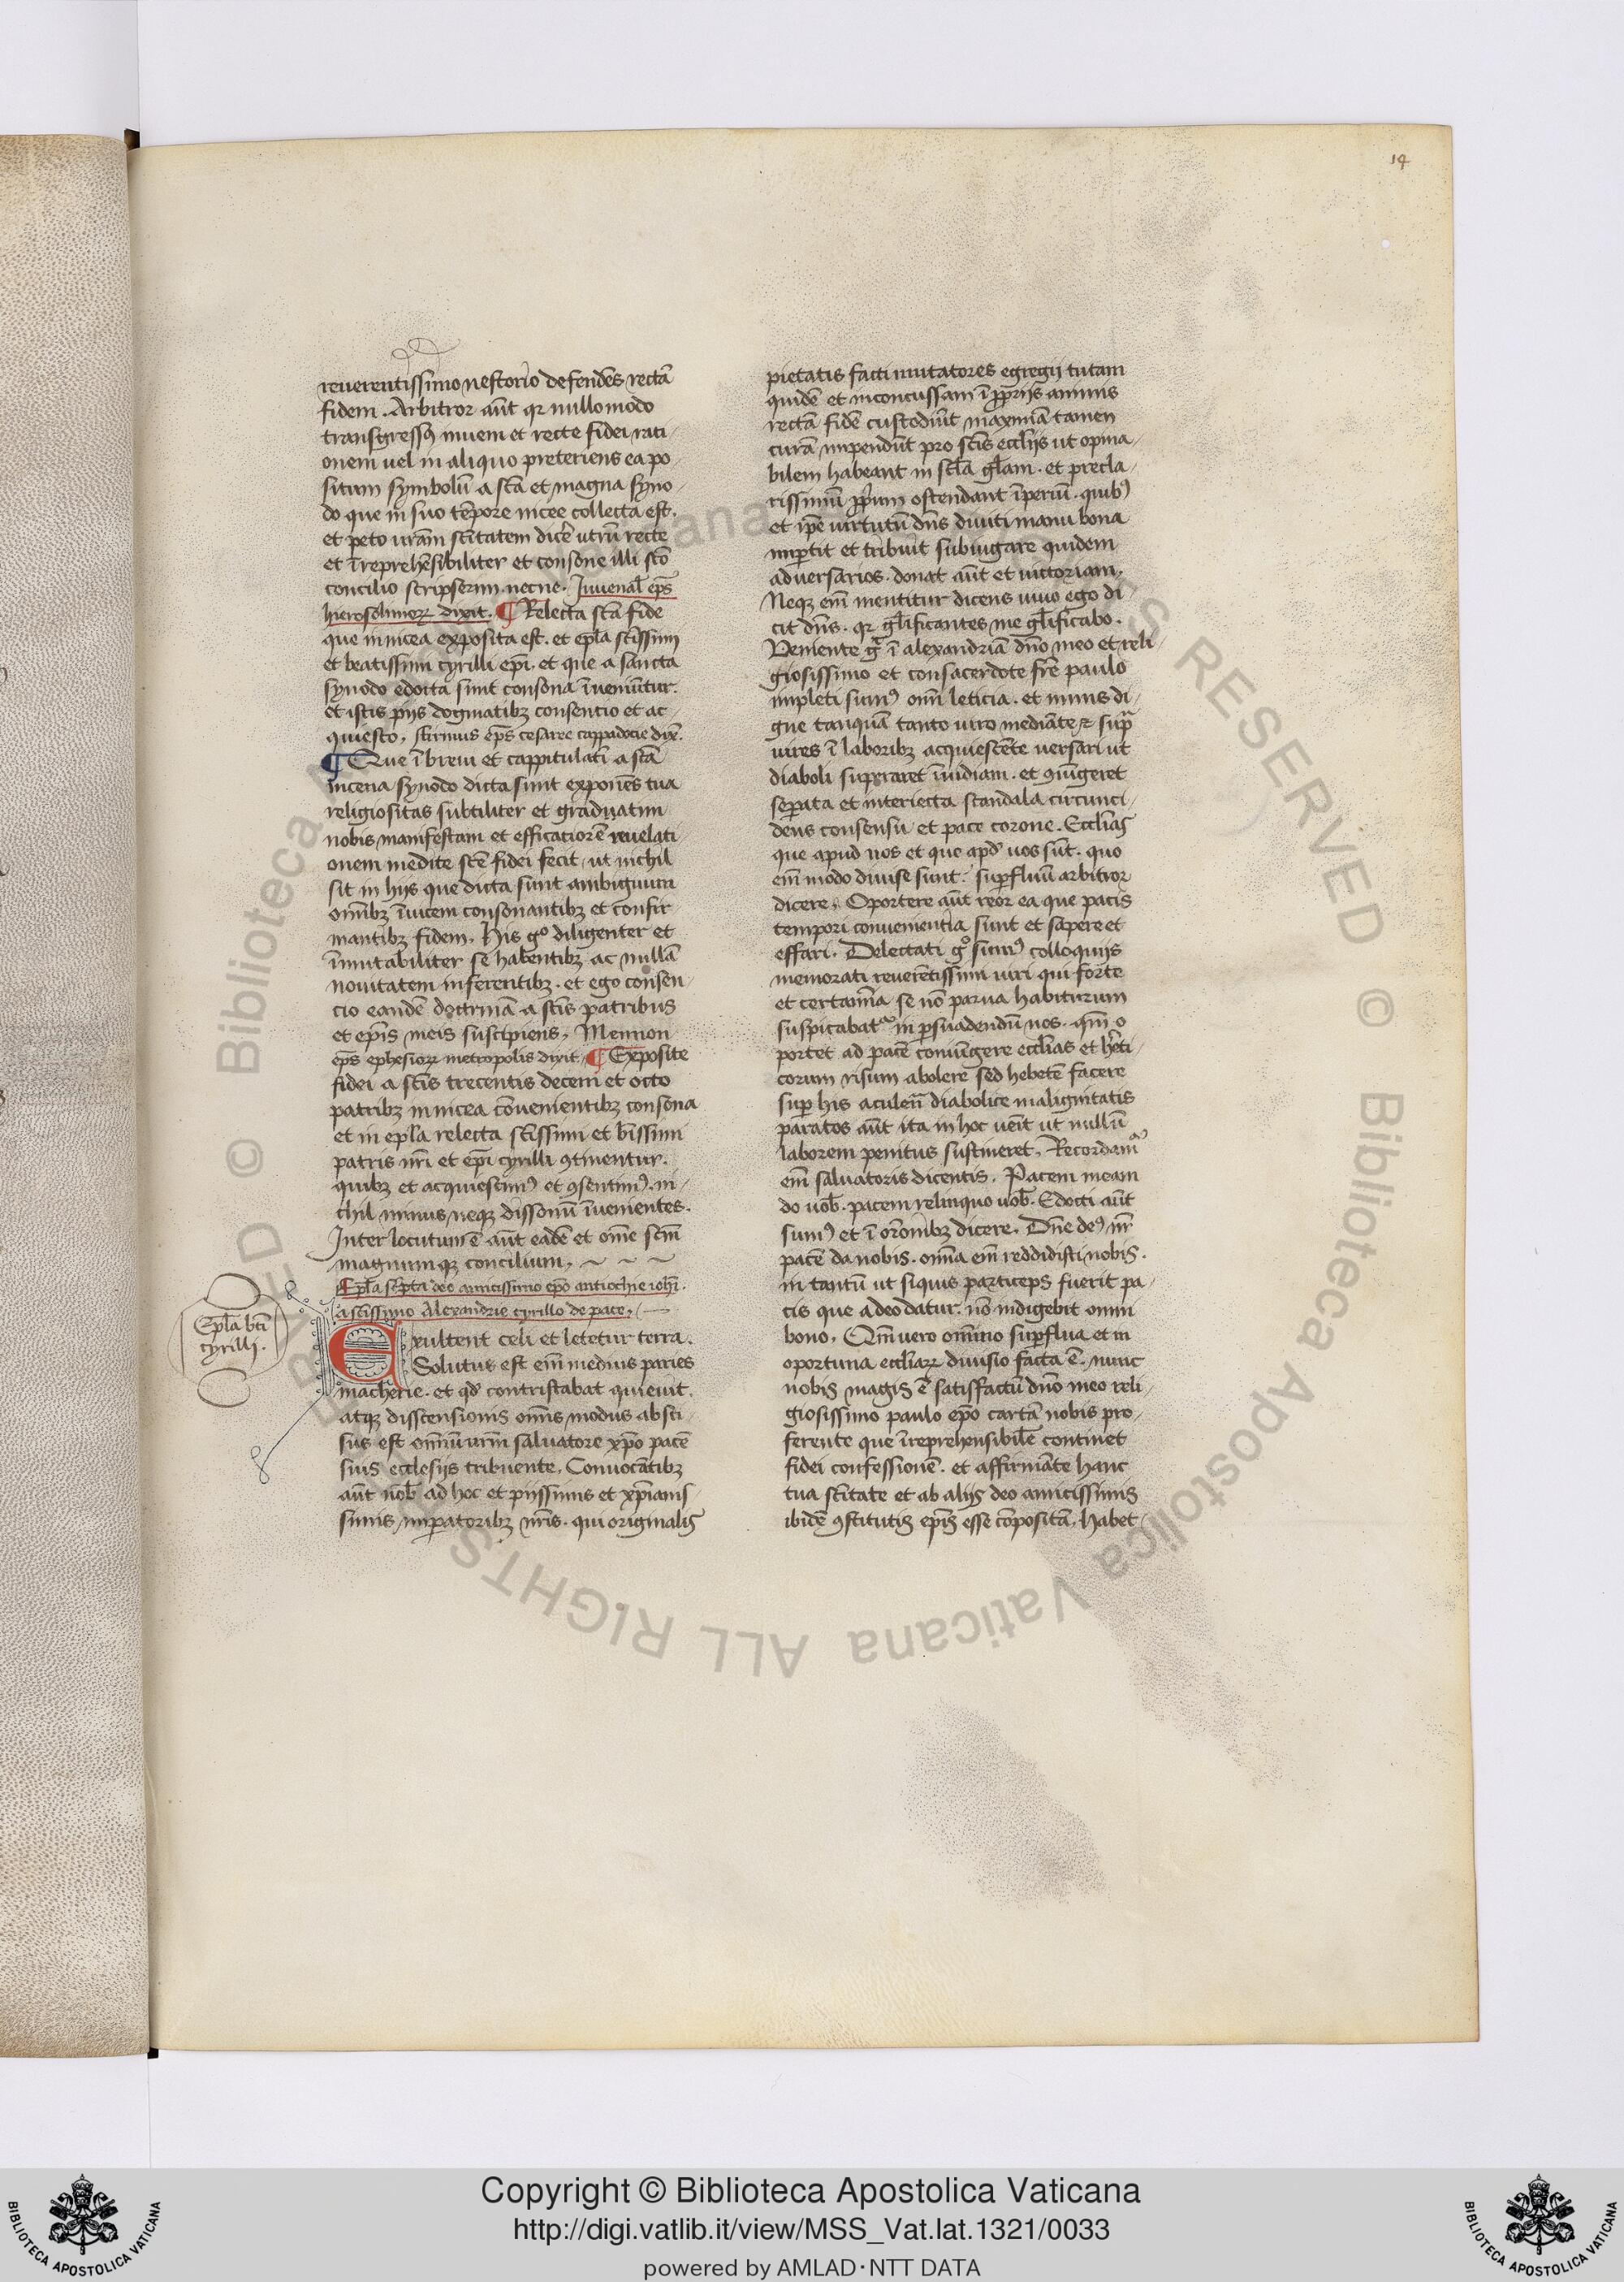 14
reuerentissimo nestorio defendẽs rectã
fidem. Arbitror aũt qr nullo modo
transgressꝰ inuem et recte fidei rati
onem uel in aliquo preteriens ea po
situm symbolũ a scã et magna syno
do que in suo tẽpore nicee collecta est.
et peto urãm scĩtatem dicẽ utrũ recte
et ĩreprehẽsibiliter et consone illi scõ
concilio scripserim necne. Iuuenal̃ ep̃s
hierosolimoꝝ dixit. ¶ Relecta scã fide
que in nicea exposita est. et epl̃a scĩssimi
et beatissimi cyrilli ep̃i. et que a sancta
synodo edocta sunt consona ĩueniũtur.
et istis pijs dogmatibꝫ consentio et ac
quiesco. firmus ep̃s cesaree cappadocie dix̃.
¶ Que ĩ breui et cappitulatĩ a scã
nicena synodo dicta sunt exponẽs tua
religiositas subtiliter et graduatim
nobis manifestam et efficatiorẽ reuelati
onem inedite scẽ fidei fecit ut nichil
sit in hijs que dicta sunt ambiguum
om̃ibꝫ ĩuicem consonantibꝫ et confir
mantibꝫ fidem. His gᵒ diligenter et
ĩmutabiliter se habentibꝫ ac nullã
nouitatem inferentibꝫ. et ego consen
cio eandẽ doctrinã a scĩs patribus
et ep̃is meis suscipiens. Memnon
ep̃s ephesioꝝ metropolis dixit. ¶ Exposite
fidei a scĩs trecentis decem et octo
patribꝫ in nicea cõuenientibꝫ consona
et in epl̃a relecta scĩssimi et bĩssimi
patris nr̃i et ep̃i cyrilli ꝯtinentur.
quibꝫ et acquiescimꝰ et ꝯsentimꝰ. ni
chil minus neqꝫ dissonũ ĩuenientes.
Inter locutum ẽ aũt eadẽ et om̃e scm̃
magnumqꝫ concilium. ~ ~ ~
Epl̃a scr̃pta deo amicissimo ep̃o antiochie ioh̃i.
a scĩssimo Alexandrie cyrillo de pace.
Epl̃a bt̃i
cyrilli.
Exultent celi et letetur terra.
Solutus est em̃ medius paries
macherie. et qd̃ contristabat quieuit.
atqꝫ disscensionis om̃is modus absci
sus est om̃iũ nr̃m saluatore xp̃o pacẽ
suis ecclesijs tribuente. Conuocãtibꝫ
aũt nob̃ ad hoc et pijssimis et xp̃ianis
simis imperatoribꝫ nr̃is. qui originalis
pietatis facti mutatores egregij tutam
quidẽ et inconcussam ĩ pp̃rijs animis
rectã fidẽ custodiũt maximã tamen
curã impendũt pro scĩs eccl̃ijs ut opina
bilem habeant in scl̃a gl̃am. et precla
rissimũ pp̃rium ostendant ĩperiũ. quibꝰ
et ip̃e uirtutũ dñs diuiti manu bona
impertit et tribuit subiugare quidem
aduersarios. donat aũt et uictoriam.
Neqꝫ em̃ mentitur dicens uiuo ego di
cit dñs. qr gl̃ificantes me gl̃ificabo.
Veniente gᵒ ĩ alexandriã dño meo et reli
giosissimo et consacerdote fr̃e paulo
impleti sumꝰ om̃i leticia. et nimis di
gne tanquã tanto uiro mediãte et supra
uires ĩ laboribꝫ acquiescẽte uersari ut
diaboli superaret ĩuidiam. et ꝯiũgeret
separata et interiecta scandala circunci
dens consensu et pace corone. Eccl̃ias
que apud nos et que apd̃ uos sũt. quo
em̃ modo diuise sunt. superfluũ arbitror
dicere. Oportere aũt reor ea que pacis
tempori conuenientia sunt et sapere et
effari. Delectati gᵒ sumꝰ colloquijs
memorati reuerẽtissimi uiri qui forte
et certamĩa se nõ parua habiturum
suspicabatᵘʳ in persuadendũ nos. qm̃ o
portet ad pacẽ coniũgere eccl̃ias et her̃ti
corum risum abolere sed hebetẽ facere
super his aculeũ diabolice malignitatis
paratos aũt ita in hoc uẽit ut nullũ
laborem penitus sustineret. Recordamᵘʳ
em̃ saluatoris dicentis. Pacem meam
do uob̃. pacem relinquo uob̃. Edocti aũt
sumꝰ et ĩ or̃onibꝫ dicere. Dñe deꝰ nr̃
pacẽ da nobis. om̃ia em̃ reddidisti nobis.
in tantũ ut siquis particeps fuerit pa
cis que a deo datur. nõ indigebit omni
bono. Qm̃ uero om̃ino superflua et in
oportuna eccl̃iaꝝ diuisio facta ẽ. nunc
nobis magis ẽ satisfactũ dño meo reli
giosissimo paulo ep̃o cartã nobis pro
ferente que ĩreprehensibilẽ continet
fidei confessionẽ. et affirmãte hanc
tua scĩtate et ab alijs deo amicissimis
ibidẽ ꝯstitutis ep̃is esse cõpositã. habet
Copyright © Biblioteca Apostolica Vaticana
http://digi.vatlib.it/view/MSS_Vat.lat.1321/0033
powered by AMLAD·NTT DATA
BIBLIOTECA APOSTOLICA VATICANA
BIBLIOTECA APOSTOLICA VATICANA
© Biblioteca Apostolica Vaticana ALL RIGHTS RESERVED